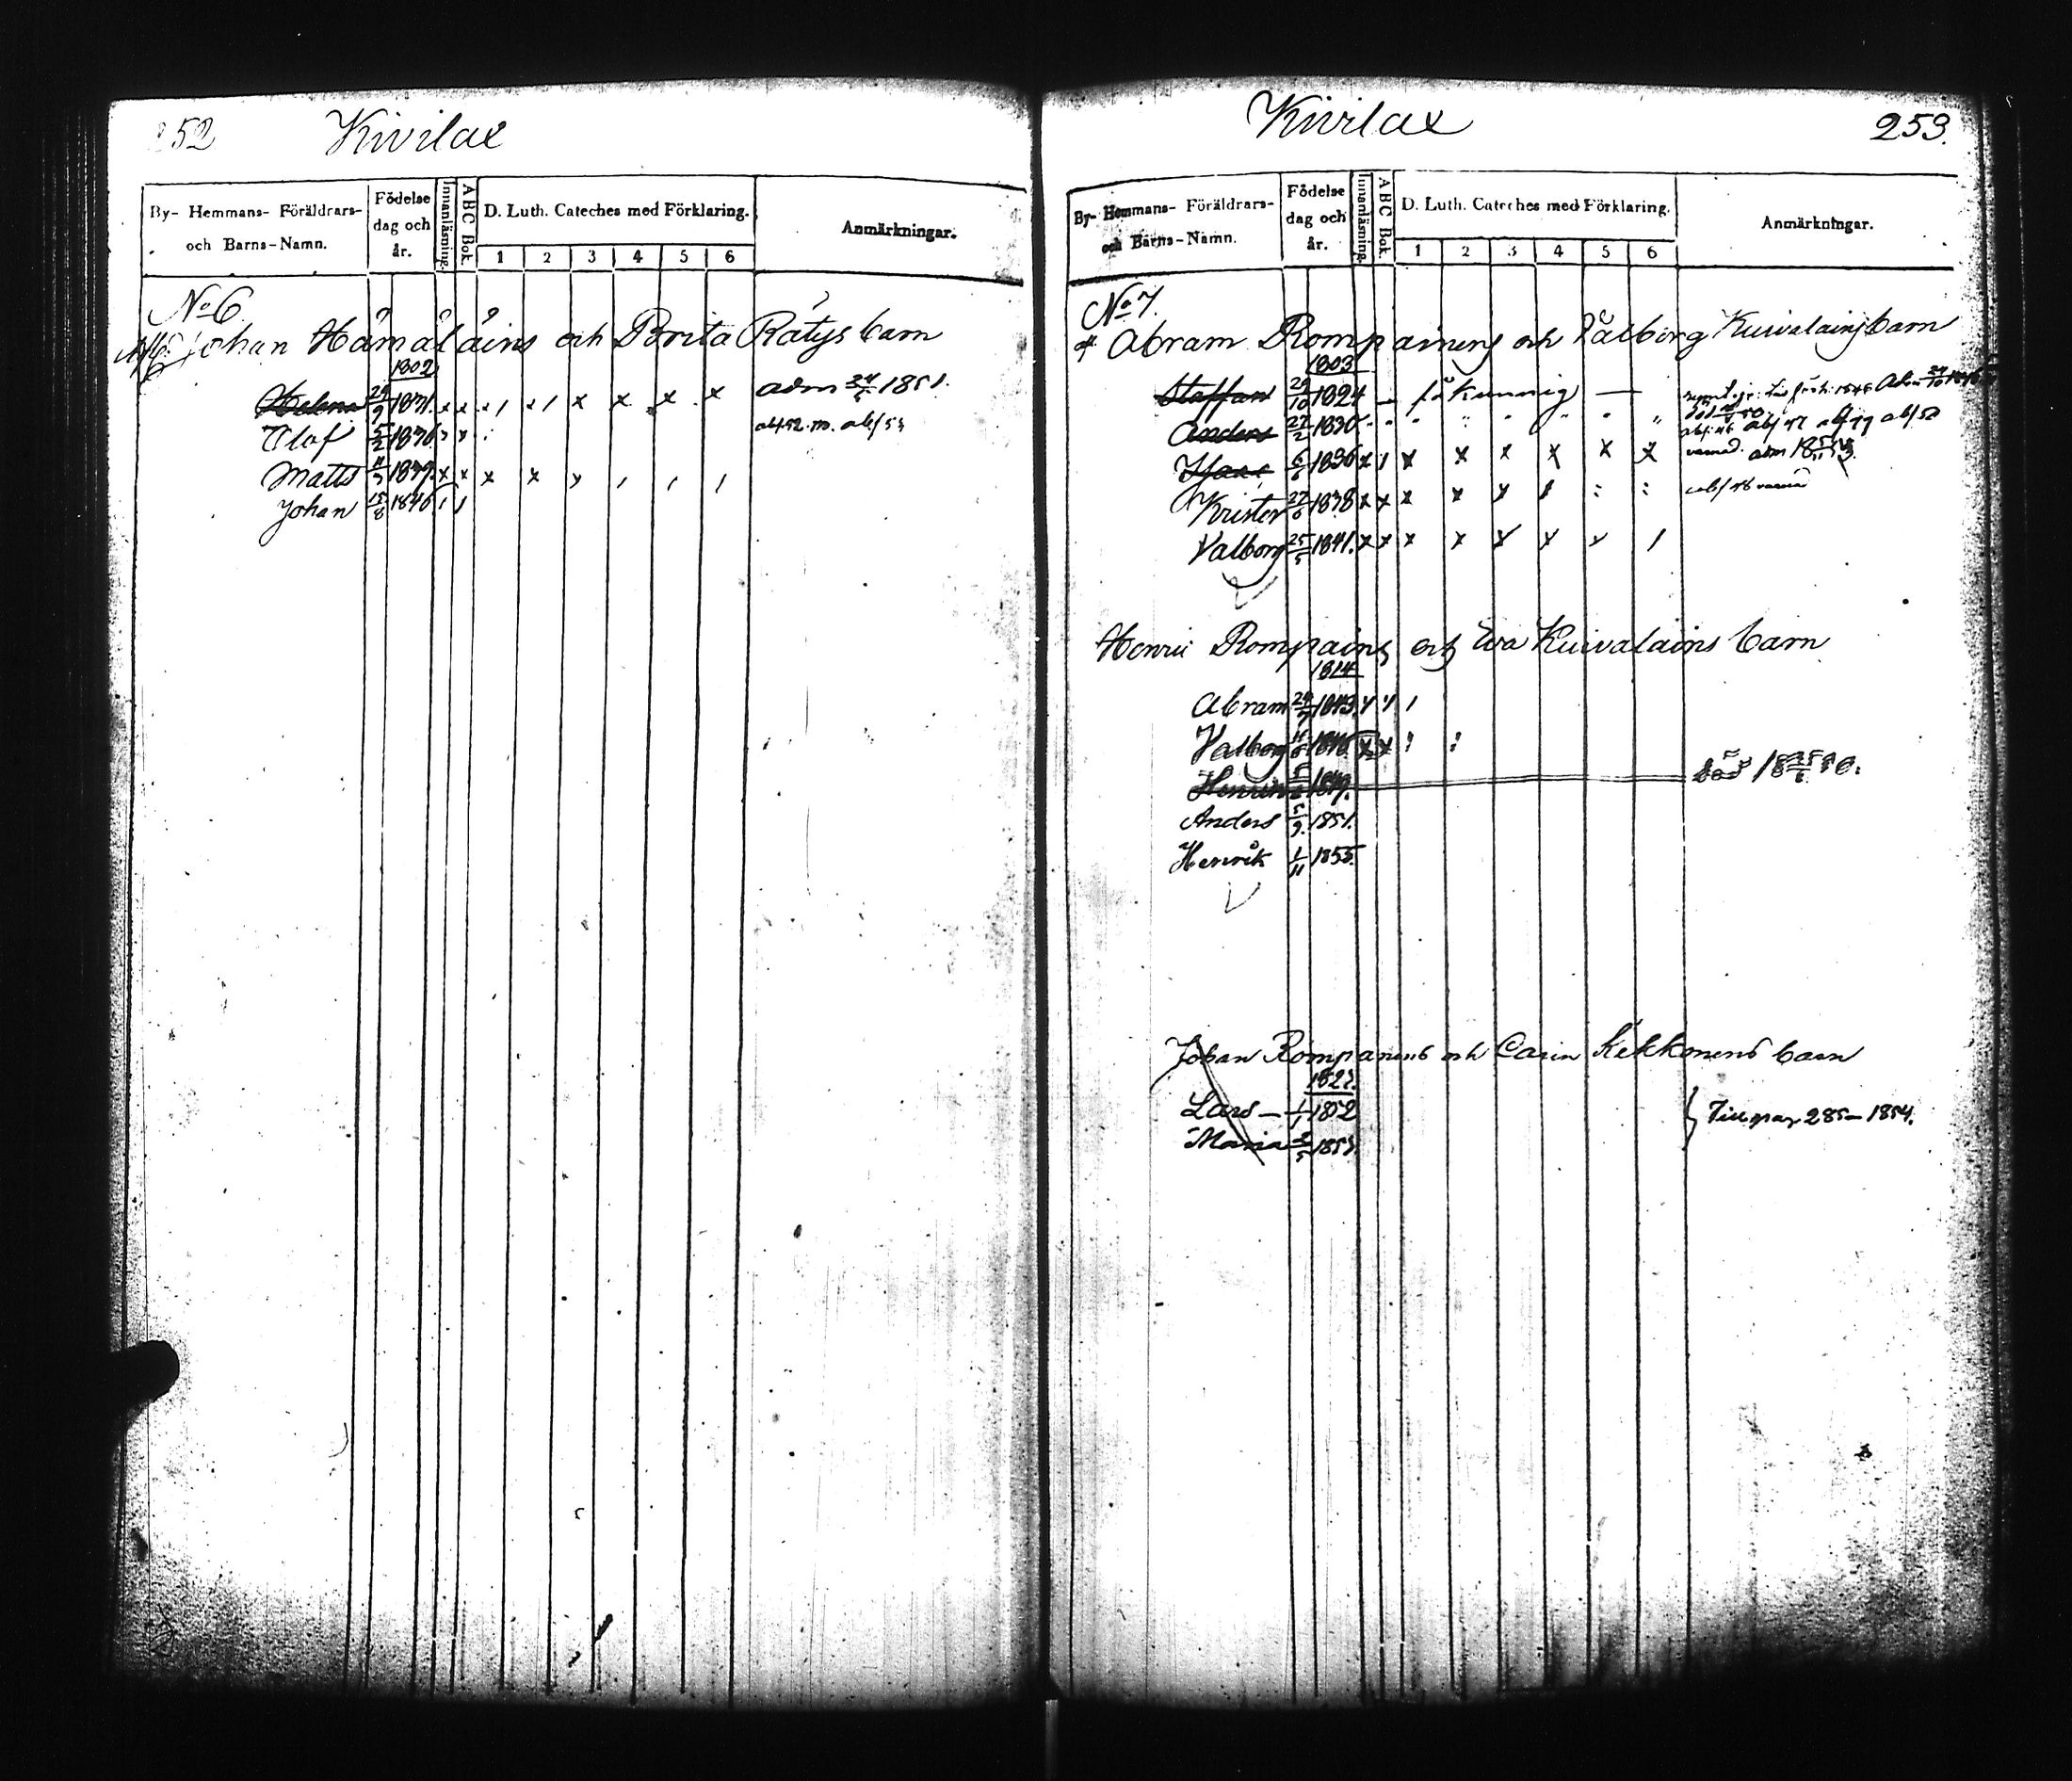 252 Kivilax
By- Hemmans- Föräldrars- och Barns-Namn. Födelse dag och år. Innanläsning. ABC Bok. D. Luth. Cateches med Förklaring. 1 2 3 4 5 6 Anmärkningar.
No 6.
Johan Hämäläins och Brita Rätys barn
1802
Helena 29/9 1831. adm 24/5 1851.
Olof 5/2 1836 abs 52. m. abs 53
Matts 1839. x x x x
Johan 15/8 1846
Kivilax 253.
By- Hemmans- Föräldrars- och Barns-Namn. Födelse dag och år. Innanläsning. ABC Bok. D. Luth. Cateches med Förklaring. 1 2 3 4 5 6 Anmärkningar.
No 7.
Abram Rompainens och Valborg Kuivalains barn
1803
Staffan 29/10 1824 – fåkunnig –
Anders 27/2 1830 abs 46 abs 47 abs 49 abs 50
6/6 1836 x x x x x x x adm
Krister 27/6 1838 x x x x x
Valborg 25/5 1841. x x x x x x x
Henric Rompains och Eva Kuivalains barn
1814
Abram 1843
Valborg 1846
Henrik 1849. död
Anders 5/9. 1851.
Henrik 1/11 1855.
Johan Rompanens och Carin Kekkonens barn
1827.
Lars – 1/1 1852 Till pag 285 – 1854.
Maria 3/5 1853.